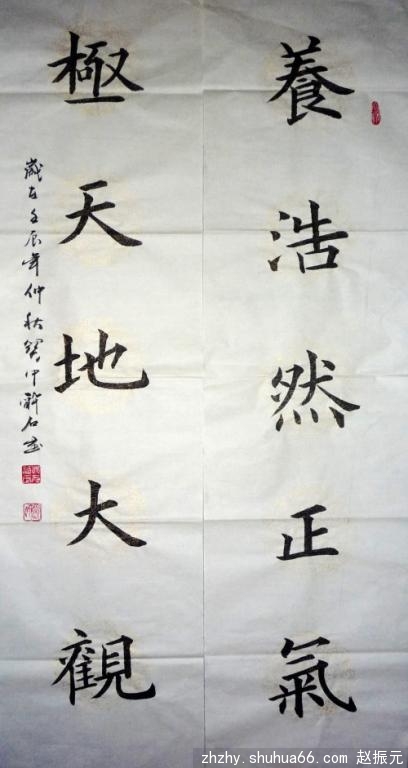 養浩然正氣
極天地大觀
歲在壬辰年仲秋
zhzhy.shuhua66.com 赵振元